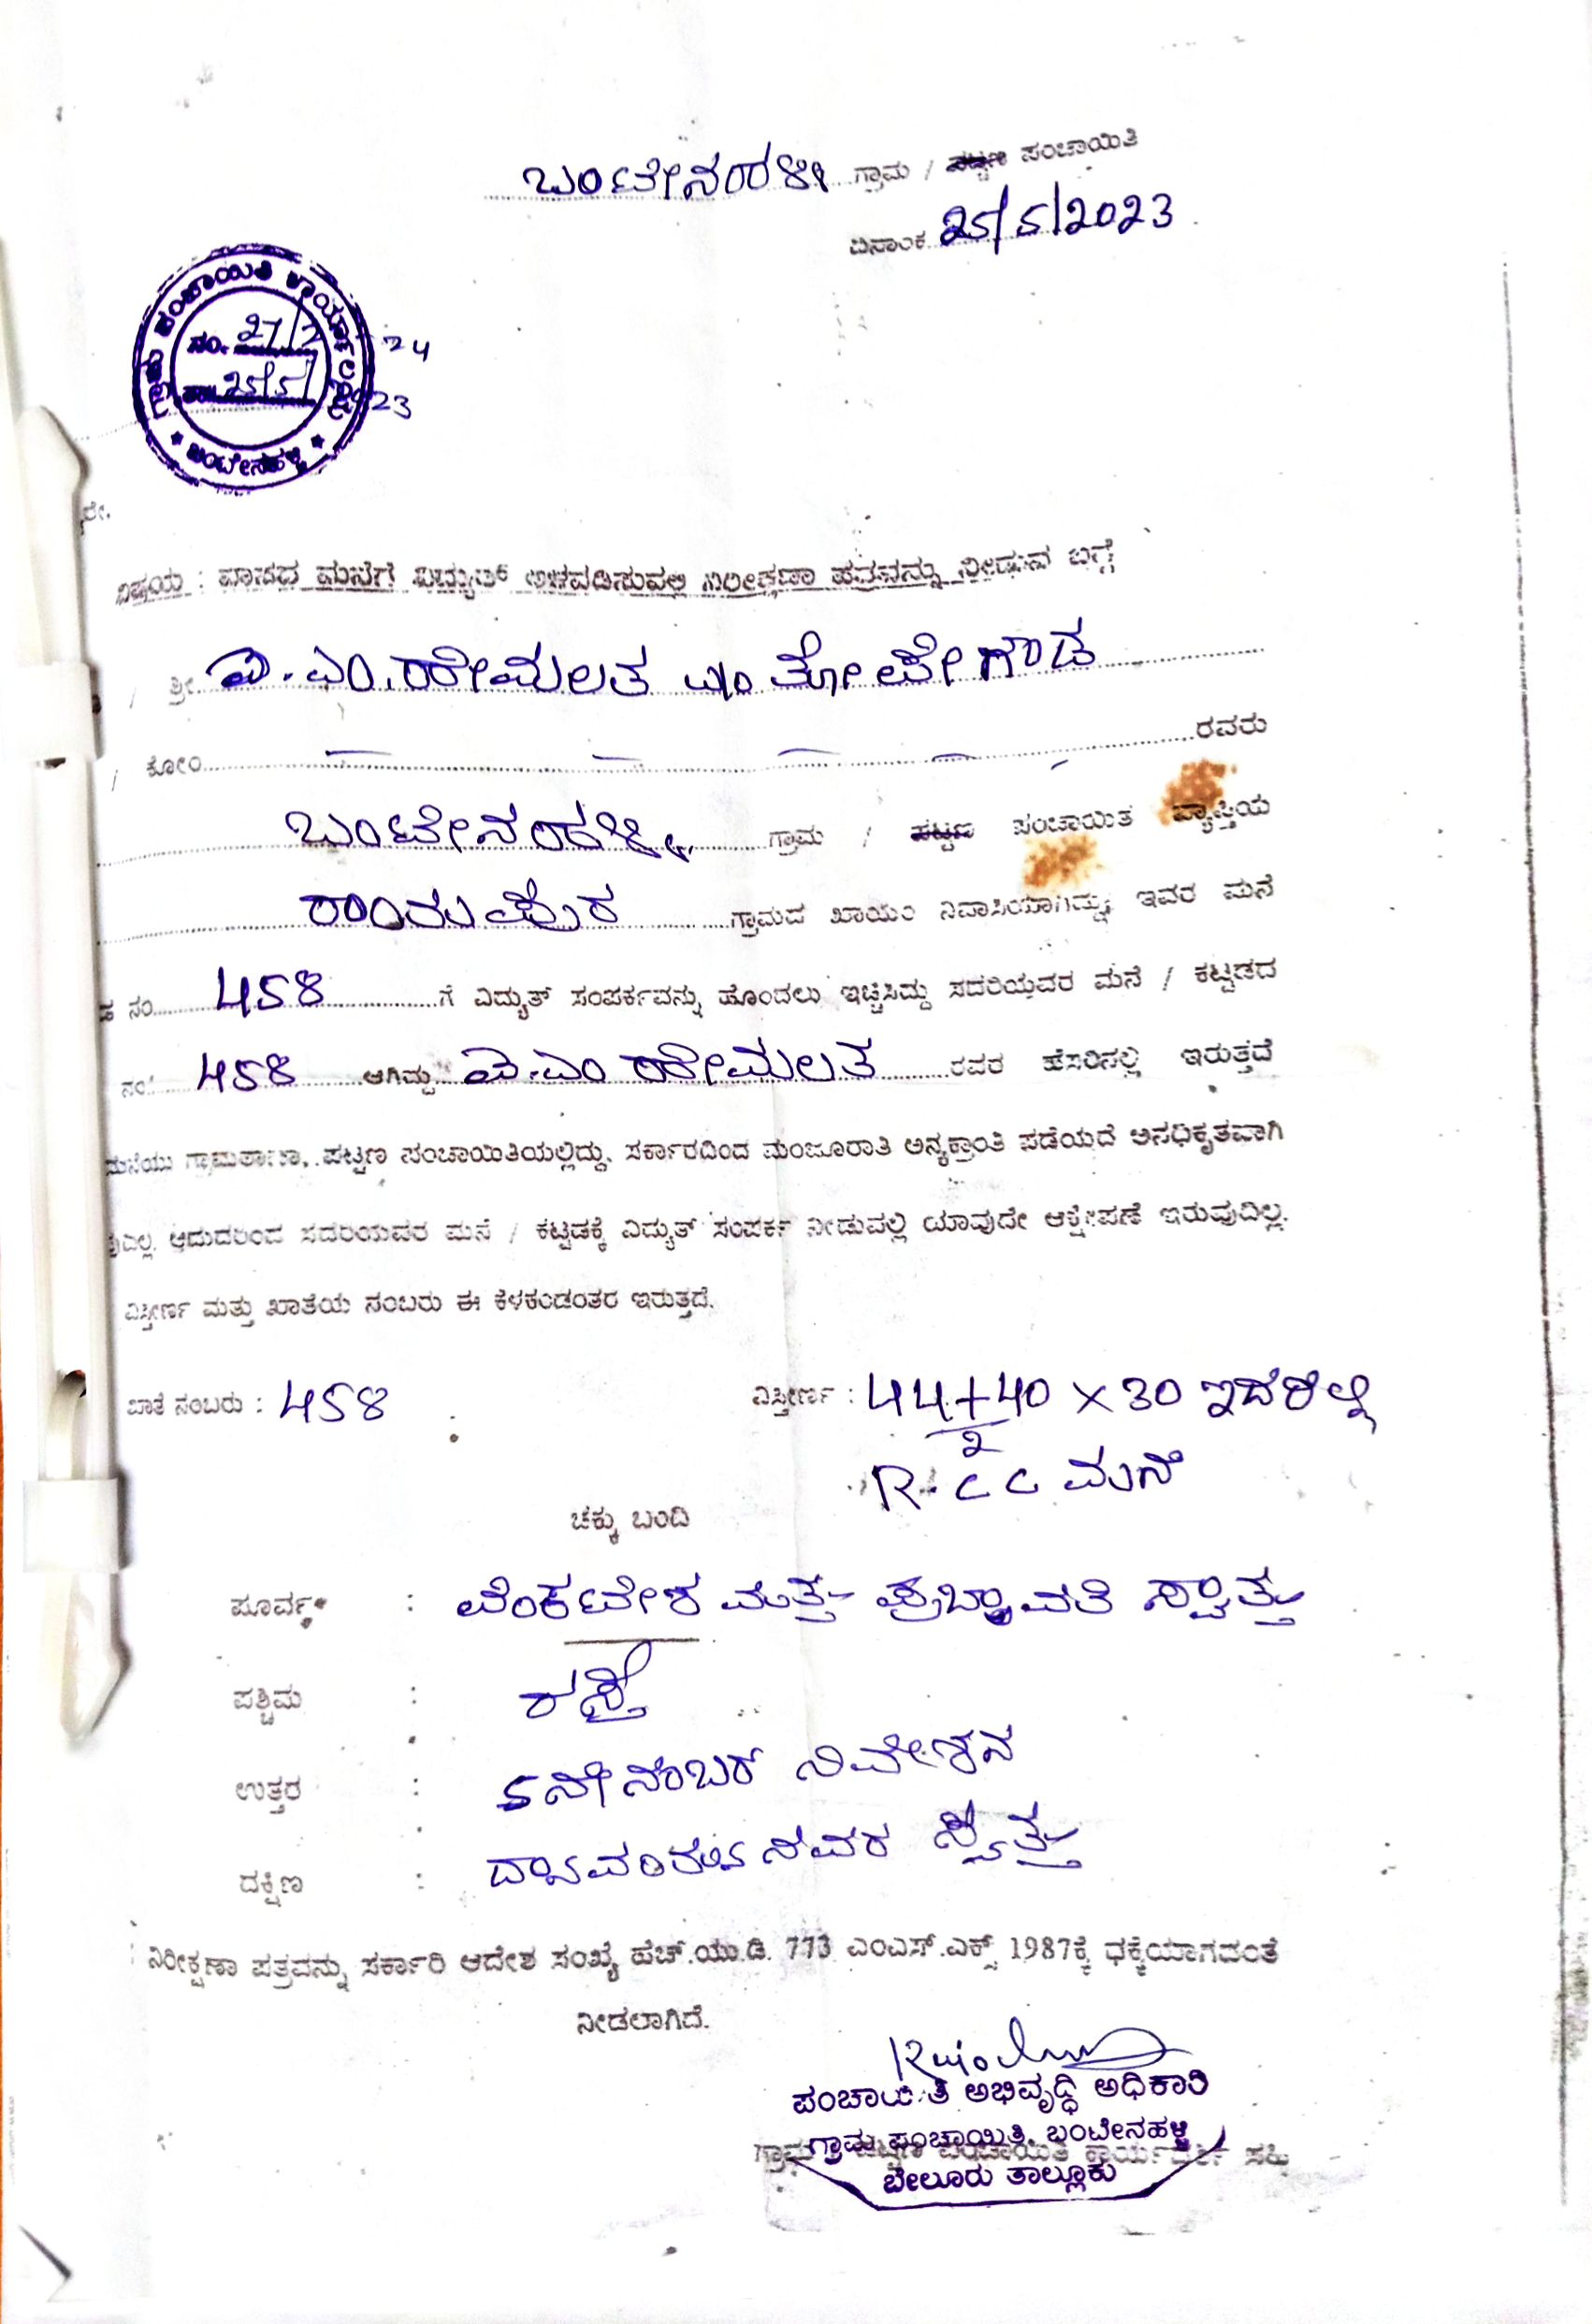 ಬಂಟೇನಹಳ್ಳಿ ಗ್ರಾಮ / ಪಟ್ಟಣ ಪಂಚಾಯಿತಿ
ದಿನಾಂಕ 25/5/2023
ಗ್ರಾಮ ಪಂಚಾಯಿತಿ ಕಾರ್ಯಾಲಯ
ನಂ. 27/ 24
ತಾ: 25/5/2023
* ಬಂಟೇನಹಳ್ಳಿ *
ರೇ.
ವಿಷಯ : ವಾಸದ ಮನೆಗೆ ವಿದ್ಯುತ್ ಅಳವಡಿಸುವಲ್ಲಿ ನಿರೀಕ್ಷಣಾ ಪತ್ರವನ್ನು ನೀಡುವ ಬಗ್ಗೆ
/ ಶ್ರೀ ವಿ.ಎಂ.ಹೇಮಲತ
/ ಕೋಂ ರವರು
ಬಂಟೇನಹಳ್ಳಿ ಗ್ರಾಮ / ಪಟ್ಟಣ ಪಂಚಾಯಿತಿ ವ್ಯಾಪ್ತಿಯ
ಗ್ರಾಮದ ಖಾಯಂ ನಿವಾಸಿಯಾಗಿದ್ದು, ಇವರ ಮನೆ
ನಂ 458 ಗೆ ವಿದ್ಯುತ್ ಸಂಪರ್ಕವನ್ನು ಹೊಂದಲು ಇಚ್ಚಿಸಿದ್ದು ಸದರಿಯವರ ಮನೆ / ಕಟ್ಟಡದ
ನಂ 458 ಆಗಿದ್ದು ವಿ.ಎಂ ಹೇಮಲತ ರವರ ಹೆಸರಿನಲ್ಲಿ ಇರುತ್ತದೆ
ಮನೆಯು ಗ್ರಾಮಠಾಣಾ, ಪಟ್ಟಣ ಪಂಚಾಯಿತಿಯಲ್ಲಿದ್ದು, ಸರ್ಕಾರದಿಂದ ಮಂಜೂರಾತಿ ಅನ್ಯಕ್ರಾಂತಿ ಪಡೆಯದೆ ಅನಧಿಕೃತವಾಗಿ
ಆದುದರಿಂದ ಸದರಿಯವರ ಮನೆ / ಕಟ್ಟಡಕ್ಕೆ ವಿದ್ಯುತ್ ಸಂಪರ್ಕ ನೀಡುವಲ್ಲಿ ಯಾವುದೇ ಆಕ್ಷೇಪಣೆ ಇರುವುದಿಲ್ಲ.
ವಿಸ್ತೀರ್ಣ ಮತ್ತು ಖಾತೆಯ ನಂಬರು ಈ ಕೆಳಕಂಡಂತರ ಇರುತ್ತದೆ.
ಖಾತೆ ನಂಬರು : 458 ವಿಸ್ತೀರ್ಣ : 44+40/2 × 30 ಇದರಲ್ಲಿ
R.CC ಮನೆ
ಚಕ್ಕು ಬಂದಿ
ಪೂರ್ವಕ್ಕೆ : ವೆಂಕಟೇಶ ಮತ್ತು ಪ್ರಭಾವತಿ ಸ್ವತ್ತು
ಪಶ್ಚಿಮ : ರಸ್ತೆ
ಉತ್ತರ : 5ನೇ ನಂಬರ್ ನಿವೇಶನ
ದಕ್ಷಿಣ : ಸ್ವತ್ತು
ನಿರೀಕ್ಷಣಾ ಪತ್ರವನ್ನು ಸರ್ಕಾರಿ ಆದೇಶ ಸಂಖ್ಯೆ ಹೆಚ್.ಯು.ಡಿ. 773 ಎಂಎಸ್.ಎಕ್ಸ್ 1987ಕ್ಕೆ ಧಕ್ಕೆಯಾಗದಂತೆ
ನೀಡಲಾಗಿದೆ.
ಪಂಚಾಯಿತಿ ಅಭಿವೃದ್ಧಿ ಅಧಿಕಾರಿ
ಗ್ರಾಮ ಪಂಚಾಯಿತಿ, ಬಂಟೇನಹಳ್ಳಿ
ಬೇಲೂರು ತಾಲ್ಲೂಕು
ಗ್ರಾಮ ಪಟ್ಟಣ ಪಂಚಾಯಿತಿ ಕಾರ್ಯದರ್ಶಿ ಸಹಿ